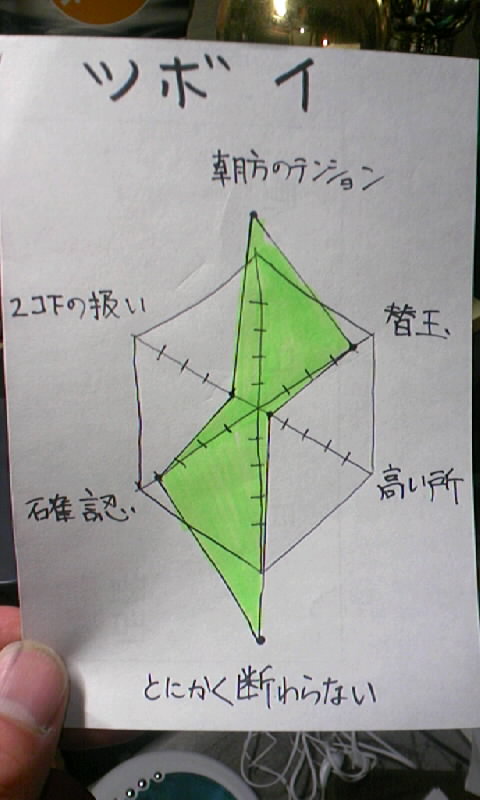 ツボイ
朝方のテンション
2コ下の扱い
替玉
高い所
確認
とにかく断わらない